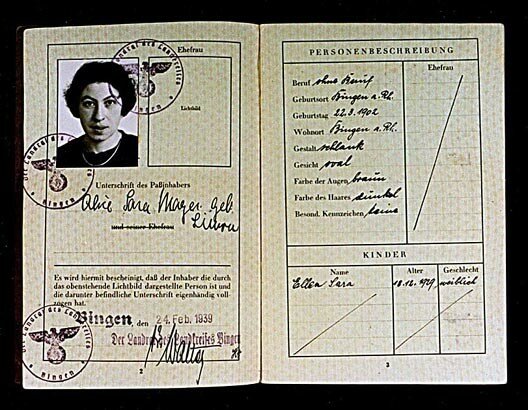 Ehefrau
Lichtbild
Der Landrat des Landkreises
Bingen
Der Landrat des Landkreises
Bingen
Unterschrift des Paßinhabers
Alice Sara Mayer geb.
und seiner Ehefrau
Es wird hiermit bescheinigt, daß der Inhaber die durch
das obenstehende Lichtbild dargestellte Person ist und
die darunter befindliche Unterschrift eigenhändig voll-
zogen hat.
Bingen, den 24. Feb. 1939
Der Landrat des Landkreises Bingen
Der Landrat des Landkreises
Bingen
2
PERSONENBESCHREIBUNG
Ehefrau
Beruf ohne Beruf
Geburtsort Bingen a. Rh.
Geburtstag 22.3.1902
Wohnort Bingen a. Rh.
Gestalt schlank
Gesicht oval
Farbe der Augen braun
Farbe des Haares dunkel
Besond. Kennzeichen keine
KINDER
Name Alter Geschlecht
Ellen Sara 18.12.1929 weiblich
3